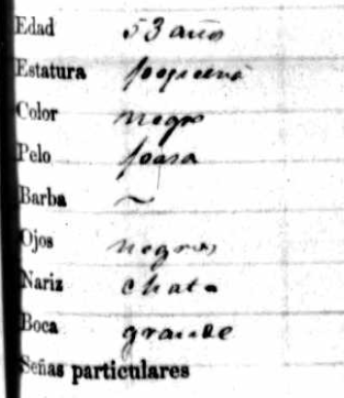 Edad 53 años
Estatura pequeña
Color negro
Pelo pasa
Barba ~
Ojos negros
Nariz chata
Boca grande
Señas particulares